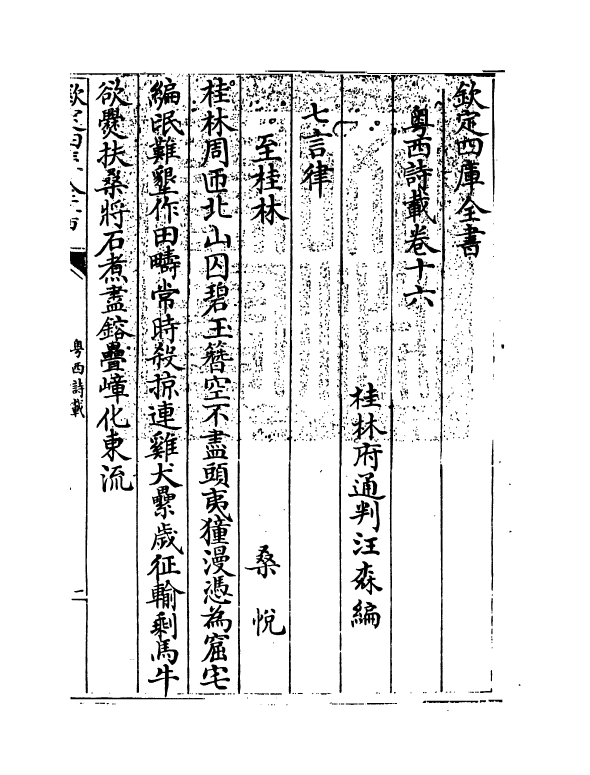 欽定四庫全書
粵西詩載卷十六
桂林府通判汪森編
七言律
至桂林 桑悅
桂林周匝北山囚碧玉簪空不盡頭夷獞漫憑為窟宅
編氓難墾作田疇常時殺掠連雞犬纍歲征輸剩馬牛
欲爨扶桑將石煮盡鎔疊嶂化東流
粵西詩載
二